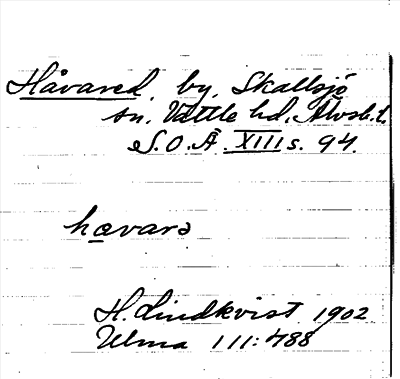 Håvared, by, Skallsjö
sn, Vättle hd, Älvsb. l.
S.O.Ä. XIII s. 94.
hævarə
H. Lindkvist 1902
Ulma 111:488